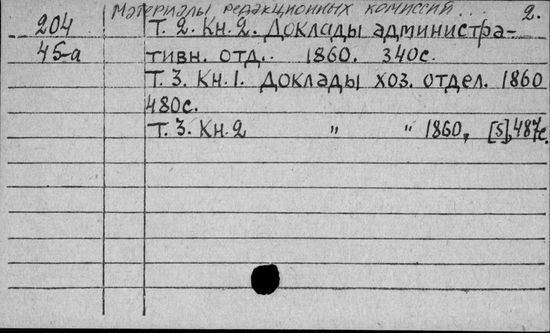 Материалы редакционных комиссий... 2.
204 Т. 2. Кн. 2. Доклады администра-
45-а тивн. отд. 1860. 340с.
Т. 3. Кн. 1. Доклады хоз. отдел. 1860
480с.
Т. 3. Кн. 2 " " 1860, [5], 487с.